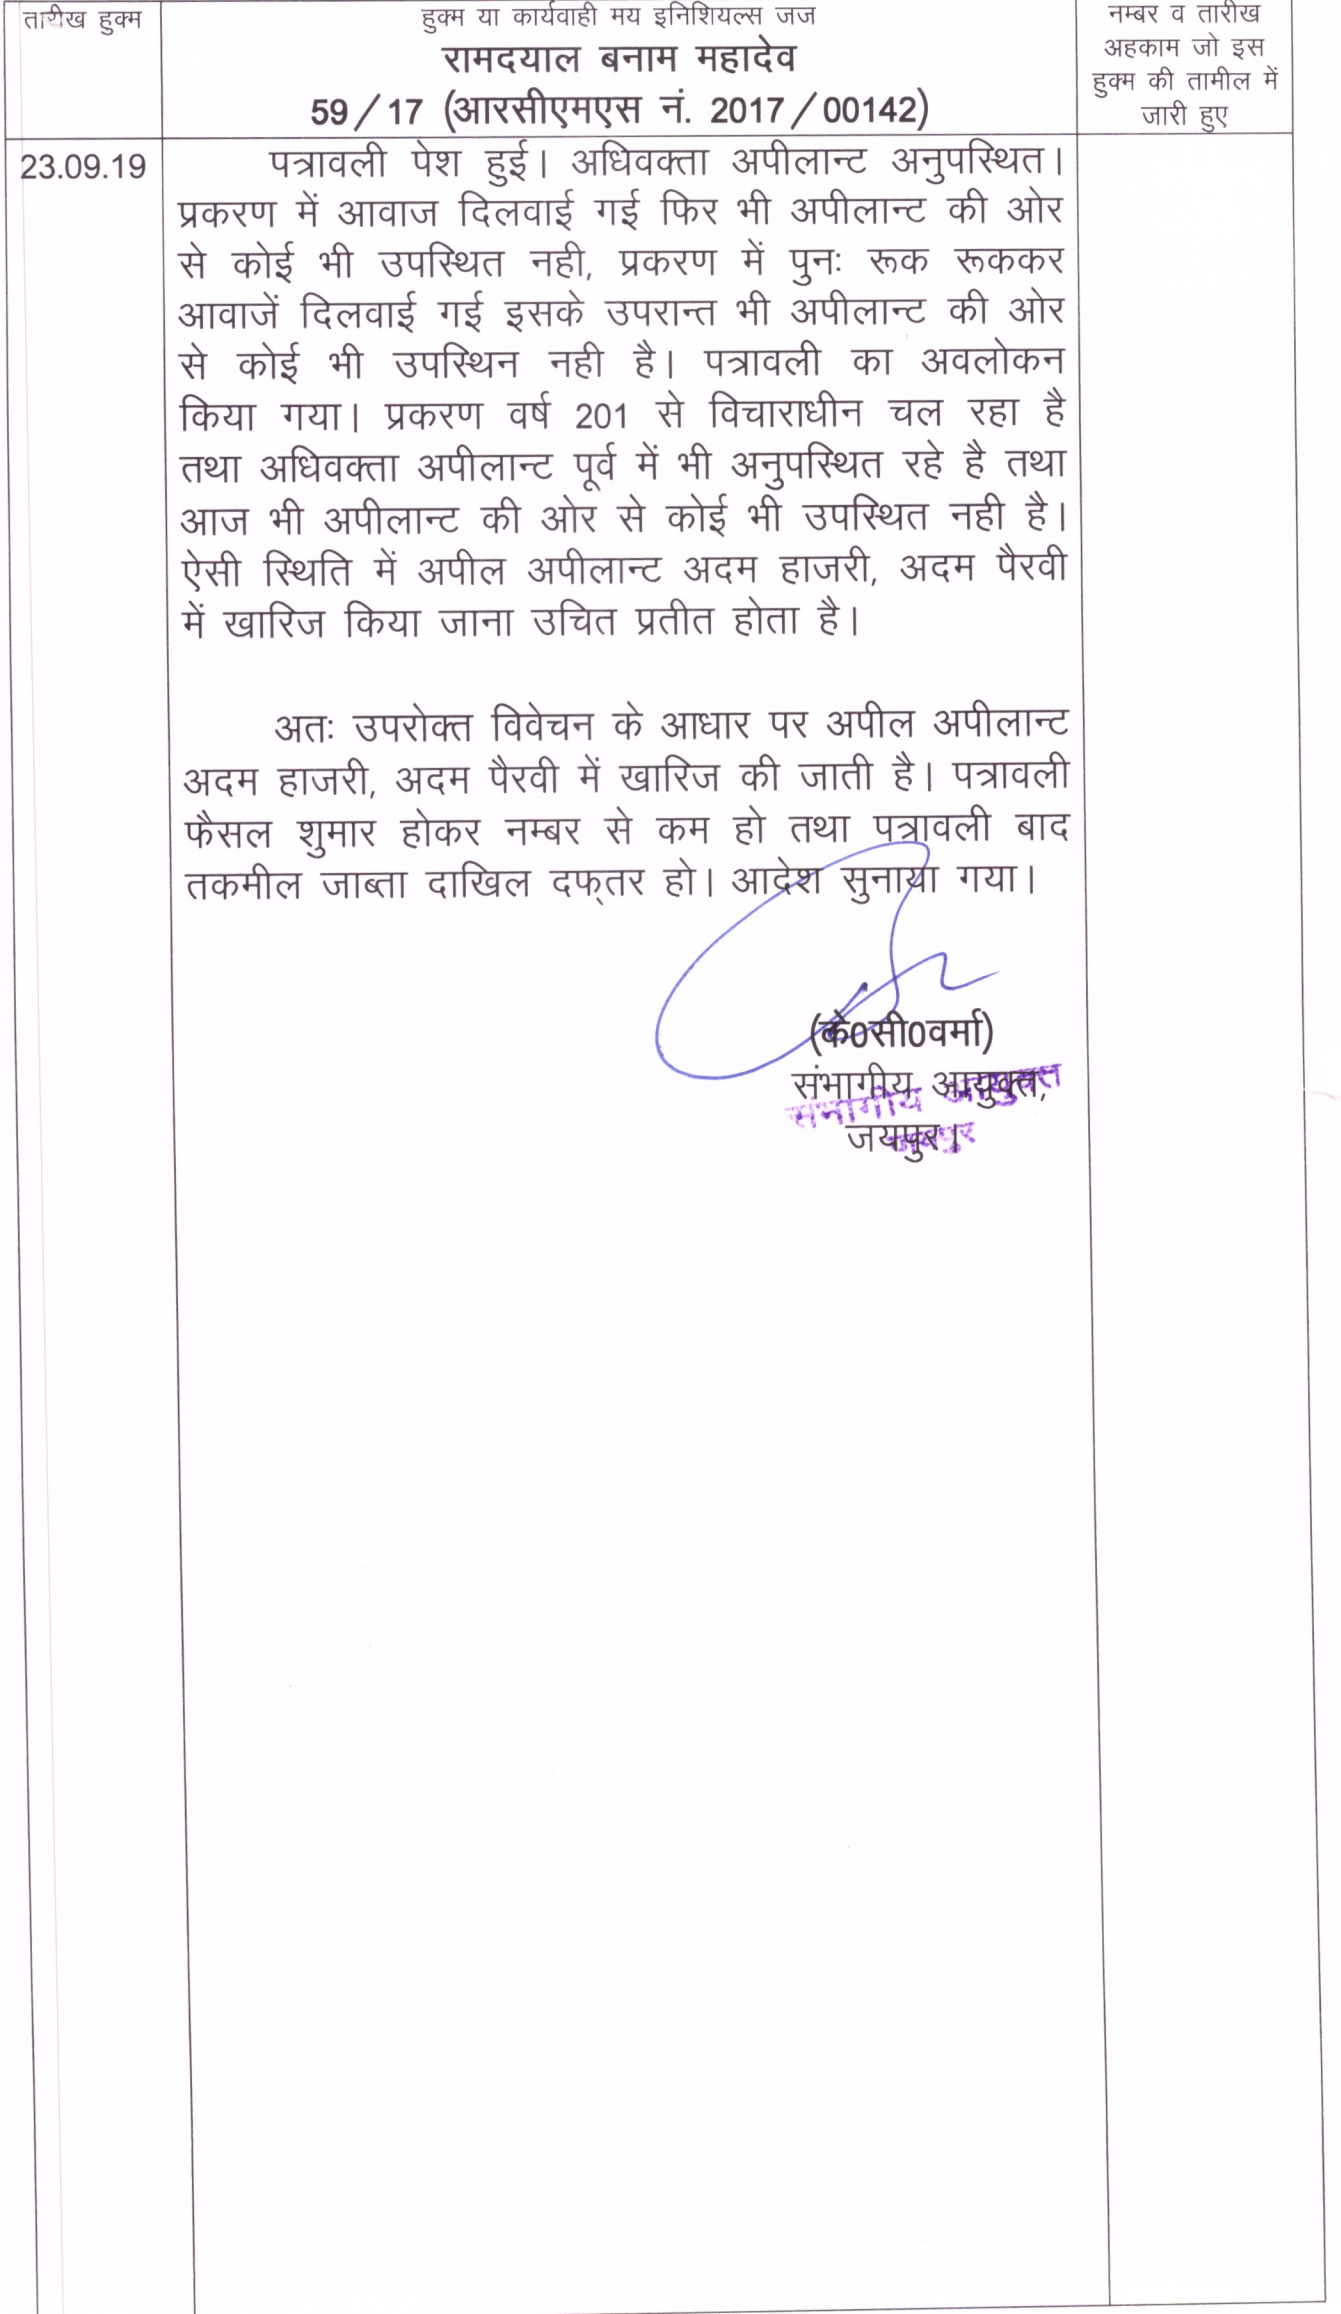 तारीख हुक्म
हुक्म या कार्यवाही मय इनिशियल्स जज
रामदयाल बनाम महादेव
59/17 (आरसीएमएस नं. 2017/00142)
नम्बर व तारीख
अहकाम जो इस
हुक्म की तामील में
जारी हुए
23.09.19
पत्रावली पेश हुई। अधिवक्ता अपीलान्ट अनुपस्थित।
प्रकरण में आवाज दिलवाई गई फिर भी अपीलान्ट की ओर
से कोई भी उपस्थित नही, प्रकरण में पुनः रूक रूककर
आवाजें दिलवाई गई इसके उपरान्त भी अपीलान्ट की ओर
से कोई भी उपस्थिन नही है। पत्रावली का अवलोकन
किया गया। प्रकरण वर्ष 201 से विचाराधीन चल रहा है
तथा अधिवक्ता अपीलान्ट पूर्व में भी अनुपस्थित रहे है तथा
आज भी अपीलान्ट की ओर से कोई भी उपस्थित नही है।
ऐसी स्थिति में अपील अपीलान्ट अदम हाजरी, अदम पैरवी
में खारिज किया जाना उचित प्रतीत होता है।
अतः उपरोक्त विवेचन के आधार पर अपील अपीलान्ट
अदम हाजरी, अदम पैरवी में खारिज की जाती है। पत्रावली
फैसल शुमार होकर नम्बर से कम हो तथा पत्रावली बाद
तकमील जाब्ता दाखिल दफ्तर हो। आदेश सुनाया गया।
(के0सी0वर्मा)
संभागीय आयुक्त,
संभागीय आयुक्त
जयपुर।
जयपुर